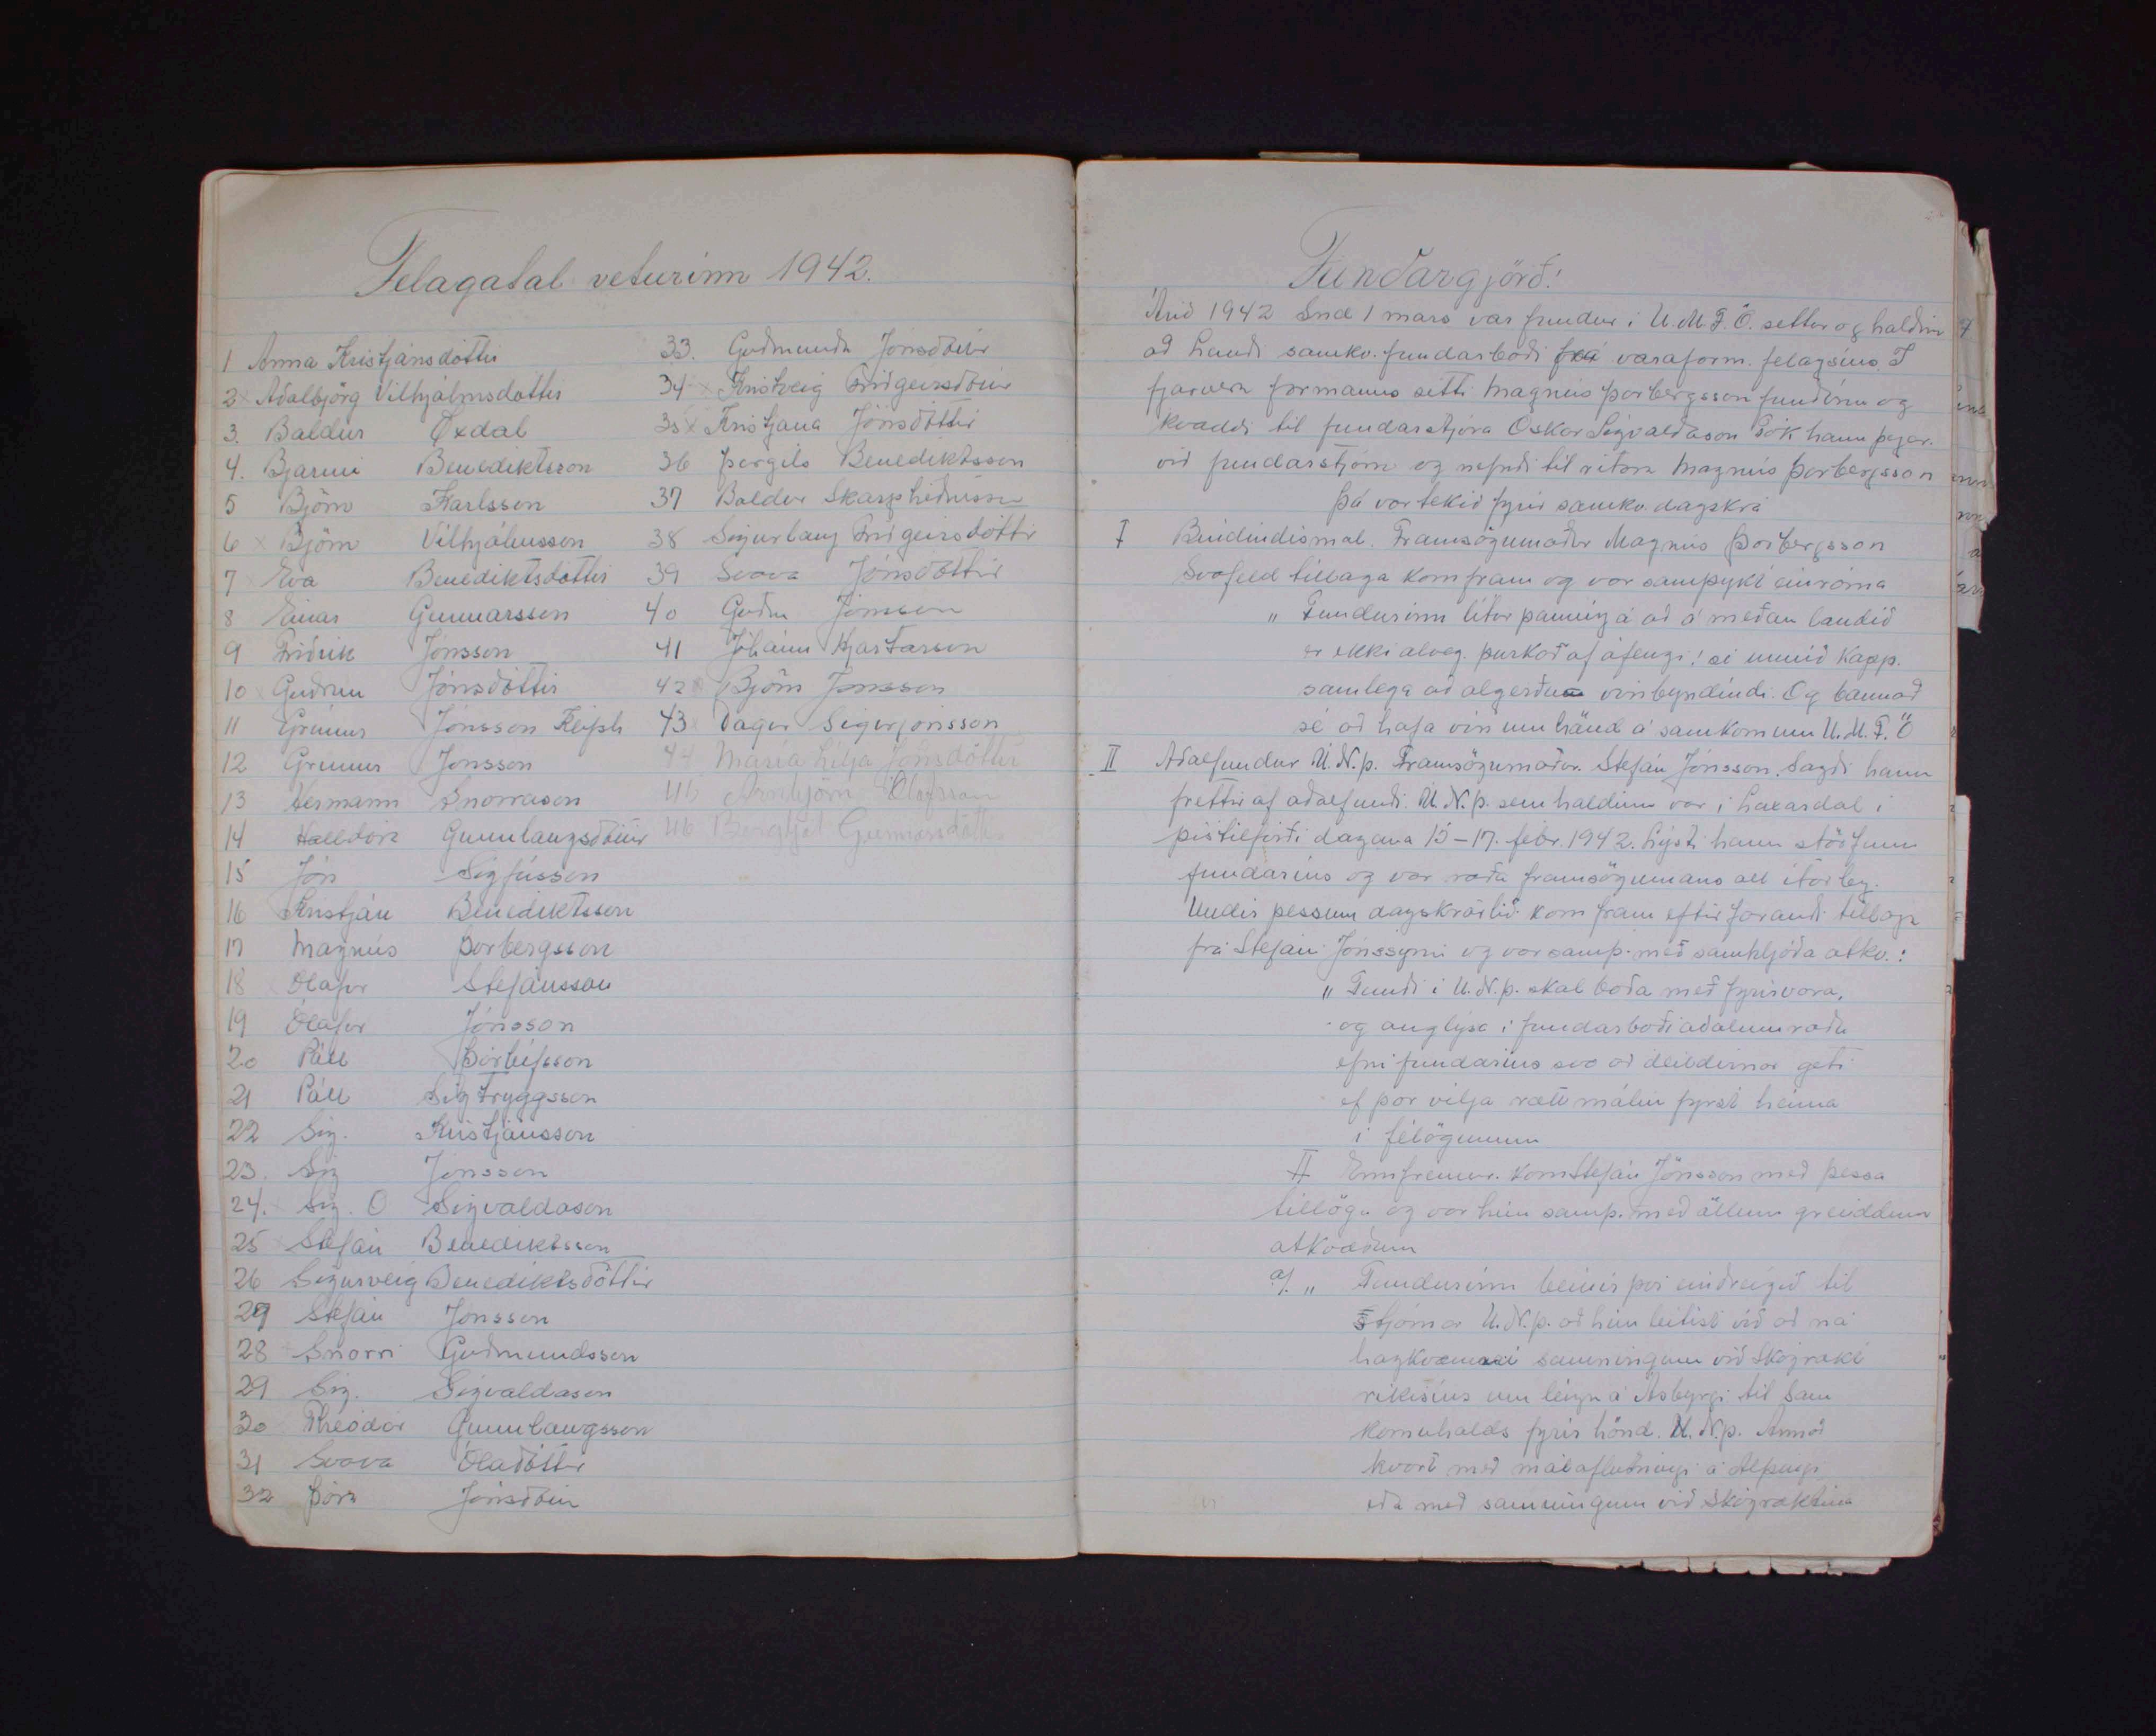 Felagatal veturinn 1942.
1 Anna Kristjánsdóttir
2 x Aðalbjörg Vilhjálmsdóttir
3. Baldur Öxdal
4. Bjarni Benediktsson
5 Björn Karlsson
6 x Björn Vilhjálmsson
7 Eva Benediktsdóttir
8 Einar Gunnarsson
9 Friðrik Jónsson
10 x Guðrún Jónsdóttir
11 Grímur Jónsson Keifsh
12 Grímur Jónsson
13 Hermann Snorrason
14 Halldóra Gunnlaugsdóttir
15 Jón Sigfússon
16 Kristján Benediktsson
17 Magnús Þorbergsson
18 Ólafur Stefánsson
19 Ólafur Jónsson
20 Páll Þorleifsson
21 Páll Sigtryggsson
22 Sig. Kristjánsson
23. Sig Jónsson
24. x Sig. O Sigvaldason
25 x Stefán Benediktsson
26 Sigurveig Benediktsdóttir
27 Stefán Jónsson
28 Snorri Guðmundsson
29 Sig. Sigvaldason
30 Theódór Gunnlaugsson
31 Svava Óladóttir
32 Þóra Jónsdóttir
33. Guðmunda Jónsdóttir
34 x Kristveig Friðgeirsdóttir
35 x Kristjana Jónsdóttir
36 Þorgils Benediktsson
37 Baldur Skarphéðinsson
38 Sigurlaug Friðgeirsdóttir
39 Svava Jónsdóttir
40 Guðm Jónsson
41 Jóhann Kjartarson
42 x Björn Jónsson
43 x Dagur Sigurjónsson
44 María Lilja Jónsdóttir
45 Arnbjörn Ólafsson
46 Bergljót Gunnarsdóttir
Fundargjörð!
Árið 1942 Snd 1 mars var fundur í U.M.F.Ö. settur og haldinn
að Lundi samkv. fundarboði frá varaform. felagsins. Í
fjarveru formanns setti Magnús Þorbergsson fundinn og
kvaddi til fundarstjóra Óskar Sigvaldason Tók hann þegar.
við fundarstjórn og nefndi til ritara Magnús Þorbergsson
Þá var tekið fyrir samkv. dagskrá
I Bindindismál. Framsögumaður Magnús Þorbergsson
Svofeld tillaga kom fram og var samþykt einróma
„ Fundurinn lítur þannig á að á meðan landið
er ekki alveg. þurkað af áfengi! sé unnið kapp.
samlega að algerðu vínbyndindi. Og bannað
sé að hafa vín um hönd á samkomum U.M.F.Ö
II Aðalfundur U.N.þ. Framsögumaður. Stefán Jónsson. Sagði hann
fréttir af aðalfundi. U.N.þ. sem haldinn var í Laxárdal í
þistilfirði dagana 15-17. febr. 1942. Lýsti hann störfum
fundarins og var ræða framsögumans all ítarleg.
Undir þessum dagskrárlið. kom fram eftirfarandi tillaga
frá Stefáni Jónssyni og var samþ. með samhljóða atkv.:
„ Fundi í U.N.þ. skal boða með fyrirvara,
og auglýsa í fundarboði aðalumræðu
efni fundarins svo að deildirnar geti
ef þær vilja rætt málin fyrst heima
í félögunum
II Ennfremur. kom Stefán Jónsson með þessa
tillögu og var hún samþ. með öllum greiddum
atkvæðum
a/. „ Fundurinn beinir því eindregið til
Stjórnar U.N.þ. að hún leitist við að ná
hagkvæmri samningum við Skógrækt
ríkisins um leigu á Ásbyrgi til sam
komuhalds fyrir hönd. U.N.þ. Annað
hvort með málaflutningi á Alþingi
eða með samningum við Skógræktina